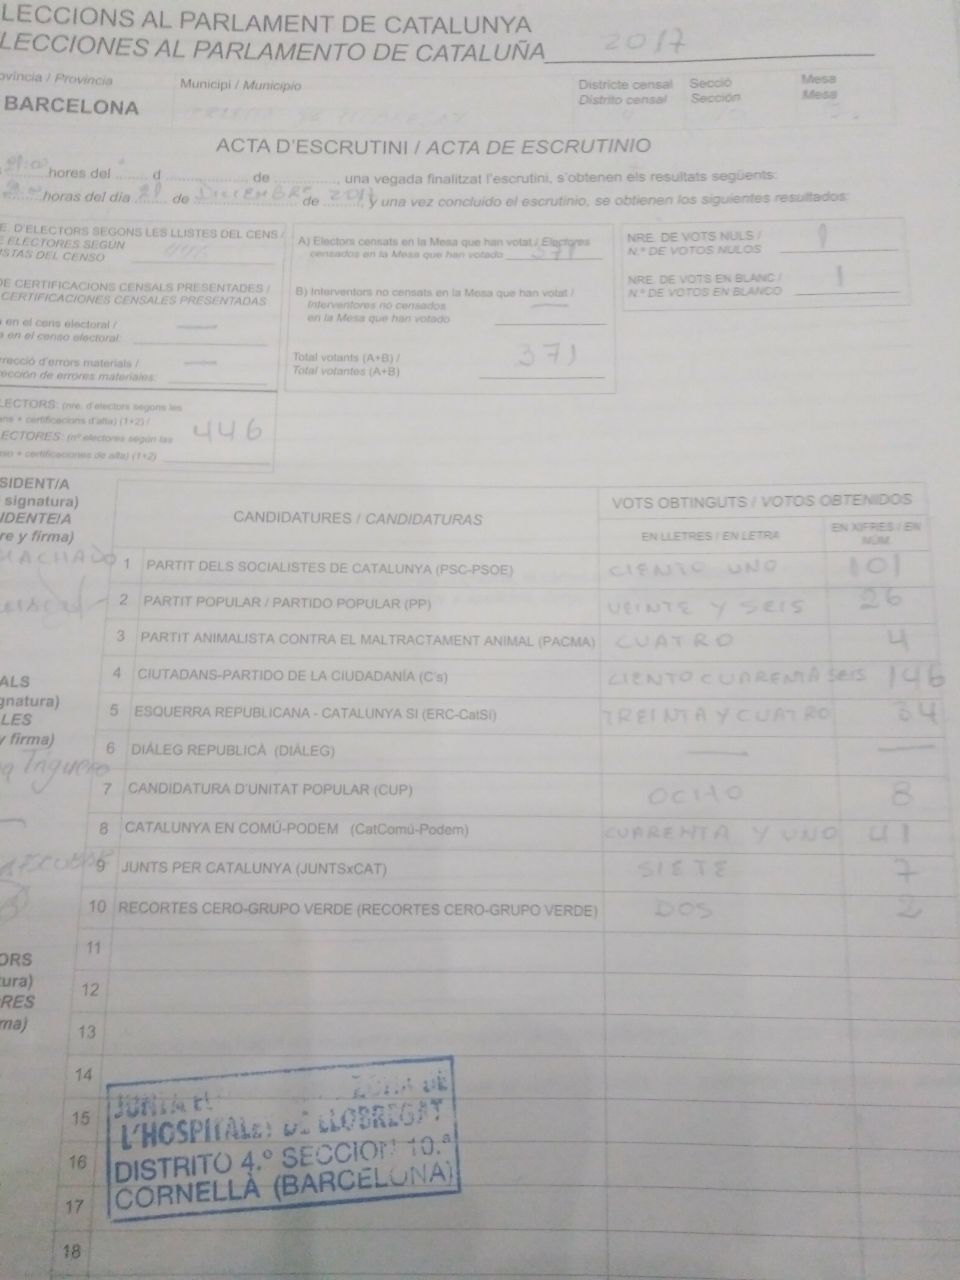 LECCIONS AL PARLAMENT DE CATALUNYA
LECCIONES AL PARLAMENTO DE CATALUÑA 2017
ovíncia / Provincia
Municipi / Municipio
Districte censal
Distrito censal
Secció
Sección
Mesa
Mesa
BARCELONA
ACTA D'ESCRUTINI / ACTA DE ESCRUTINIO
hores del d de , una vegada finalitzat l'escrutini, s'obtenen els resultats següents:
horas del día 21 de DICIEMBRE de 2017, y una vez concluido el escrutinio, se obtienen los siguientes resultados:
E. D'ELECTORS SEGONS LES LLISTES DEL CENS /
E ELECTORES SEGÚN
ISTAS DEL CENSO 446
DE CERTIFICACIONS CENSALS PRESENTADES /
CERTIFICACIONES CENSALES PRESENTADAS
en el cens electoral /
a en el censo electoral:
rrecció d'errors materials /
ección de errores materiales:
LECTORS: (nre. d'electors segons les
ens + certificacions d'alta) (1+2) /
ECTORES: (nº electores según las
so + certificaciones de alta) (1+2)
446
A) Electors censats en la Mesa que han votat / Electores
censados en la Mesa que han votado 371
B) Interventors no censats en la Mesa que han votat /
Interventores no censados
en la Mesa que han votado
Total votants (A+B) /
Total votantes (A+B)
371
NRE. DE VOTS NULS /
N.º DE VOTOS NULOS
1
NRE. DE VOTS EN BLANC /
N.º DE VOTOS EN BLANCO
1
SIDENT/A
signatura)
IDENTE/A
re y firma)
MACHADO
ALS
gnatura)
LES
y firma)
Triguero
ORS
tura)
RES
ma)
CANDIDATURES / CANDIDATURAS
VOTS OBTINGUTS / VOTOS OBTENIDOS
EN LLETRES / EN LETRA
EN XIFRES / EN NÚM.
1 PARTIT DELS SOCIALISTES DE CATALUNYA (PSC-PSOE) CIENTO UNO 101
2 PARTIT POPULAR / PARTIDO POPULAR (PP) VEINTE Y SEIS 26
3 PARTIT ANIMALISTA CONTRA EL MALTRACTAMENT ANIMAL (PACMA) CUATRO 4
4 CIUTADANS-PARTIDO DE LA CIUDADANÍA (C's) CIENTO CUARENTA SEIS 146
5 ESQUERRA REPUBLICANA - CATALUNYA SI (ERC-CatSí) TREINTA Y CUATRO 34
6 DIÀLEG REPUBLICÀ (DIÀLEG) — —
7 CANDIDATURA D'UNITAT POPULAR (CUP) OCHO 8
8 CATALUNYA EN COMÚ-PODEM (CatComú-Podem) CUARENTA Y UNO 41
9 JUNTS PER CATALUNYA (JUNTSxCAT) SIETE 7
10 RECORTES CERO-GRUPO VERDE (RECORTES CERO-GRUPO VERDE) DOS 2
11
12
13
14
15
16
17
18
JUNTA ZONA DE
L'HOSPITALET DE LLOBREGAT
DISTRITO 4.º SECCION 10.ª
CORNELLÀ (BARCELONA)